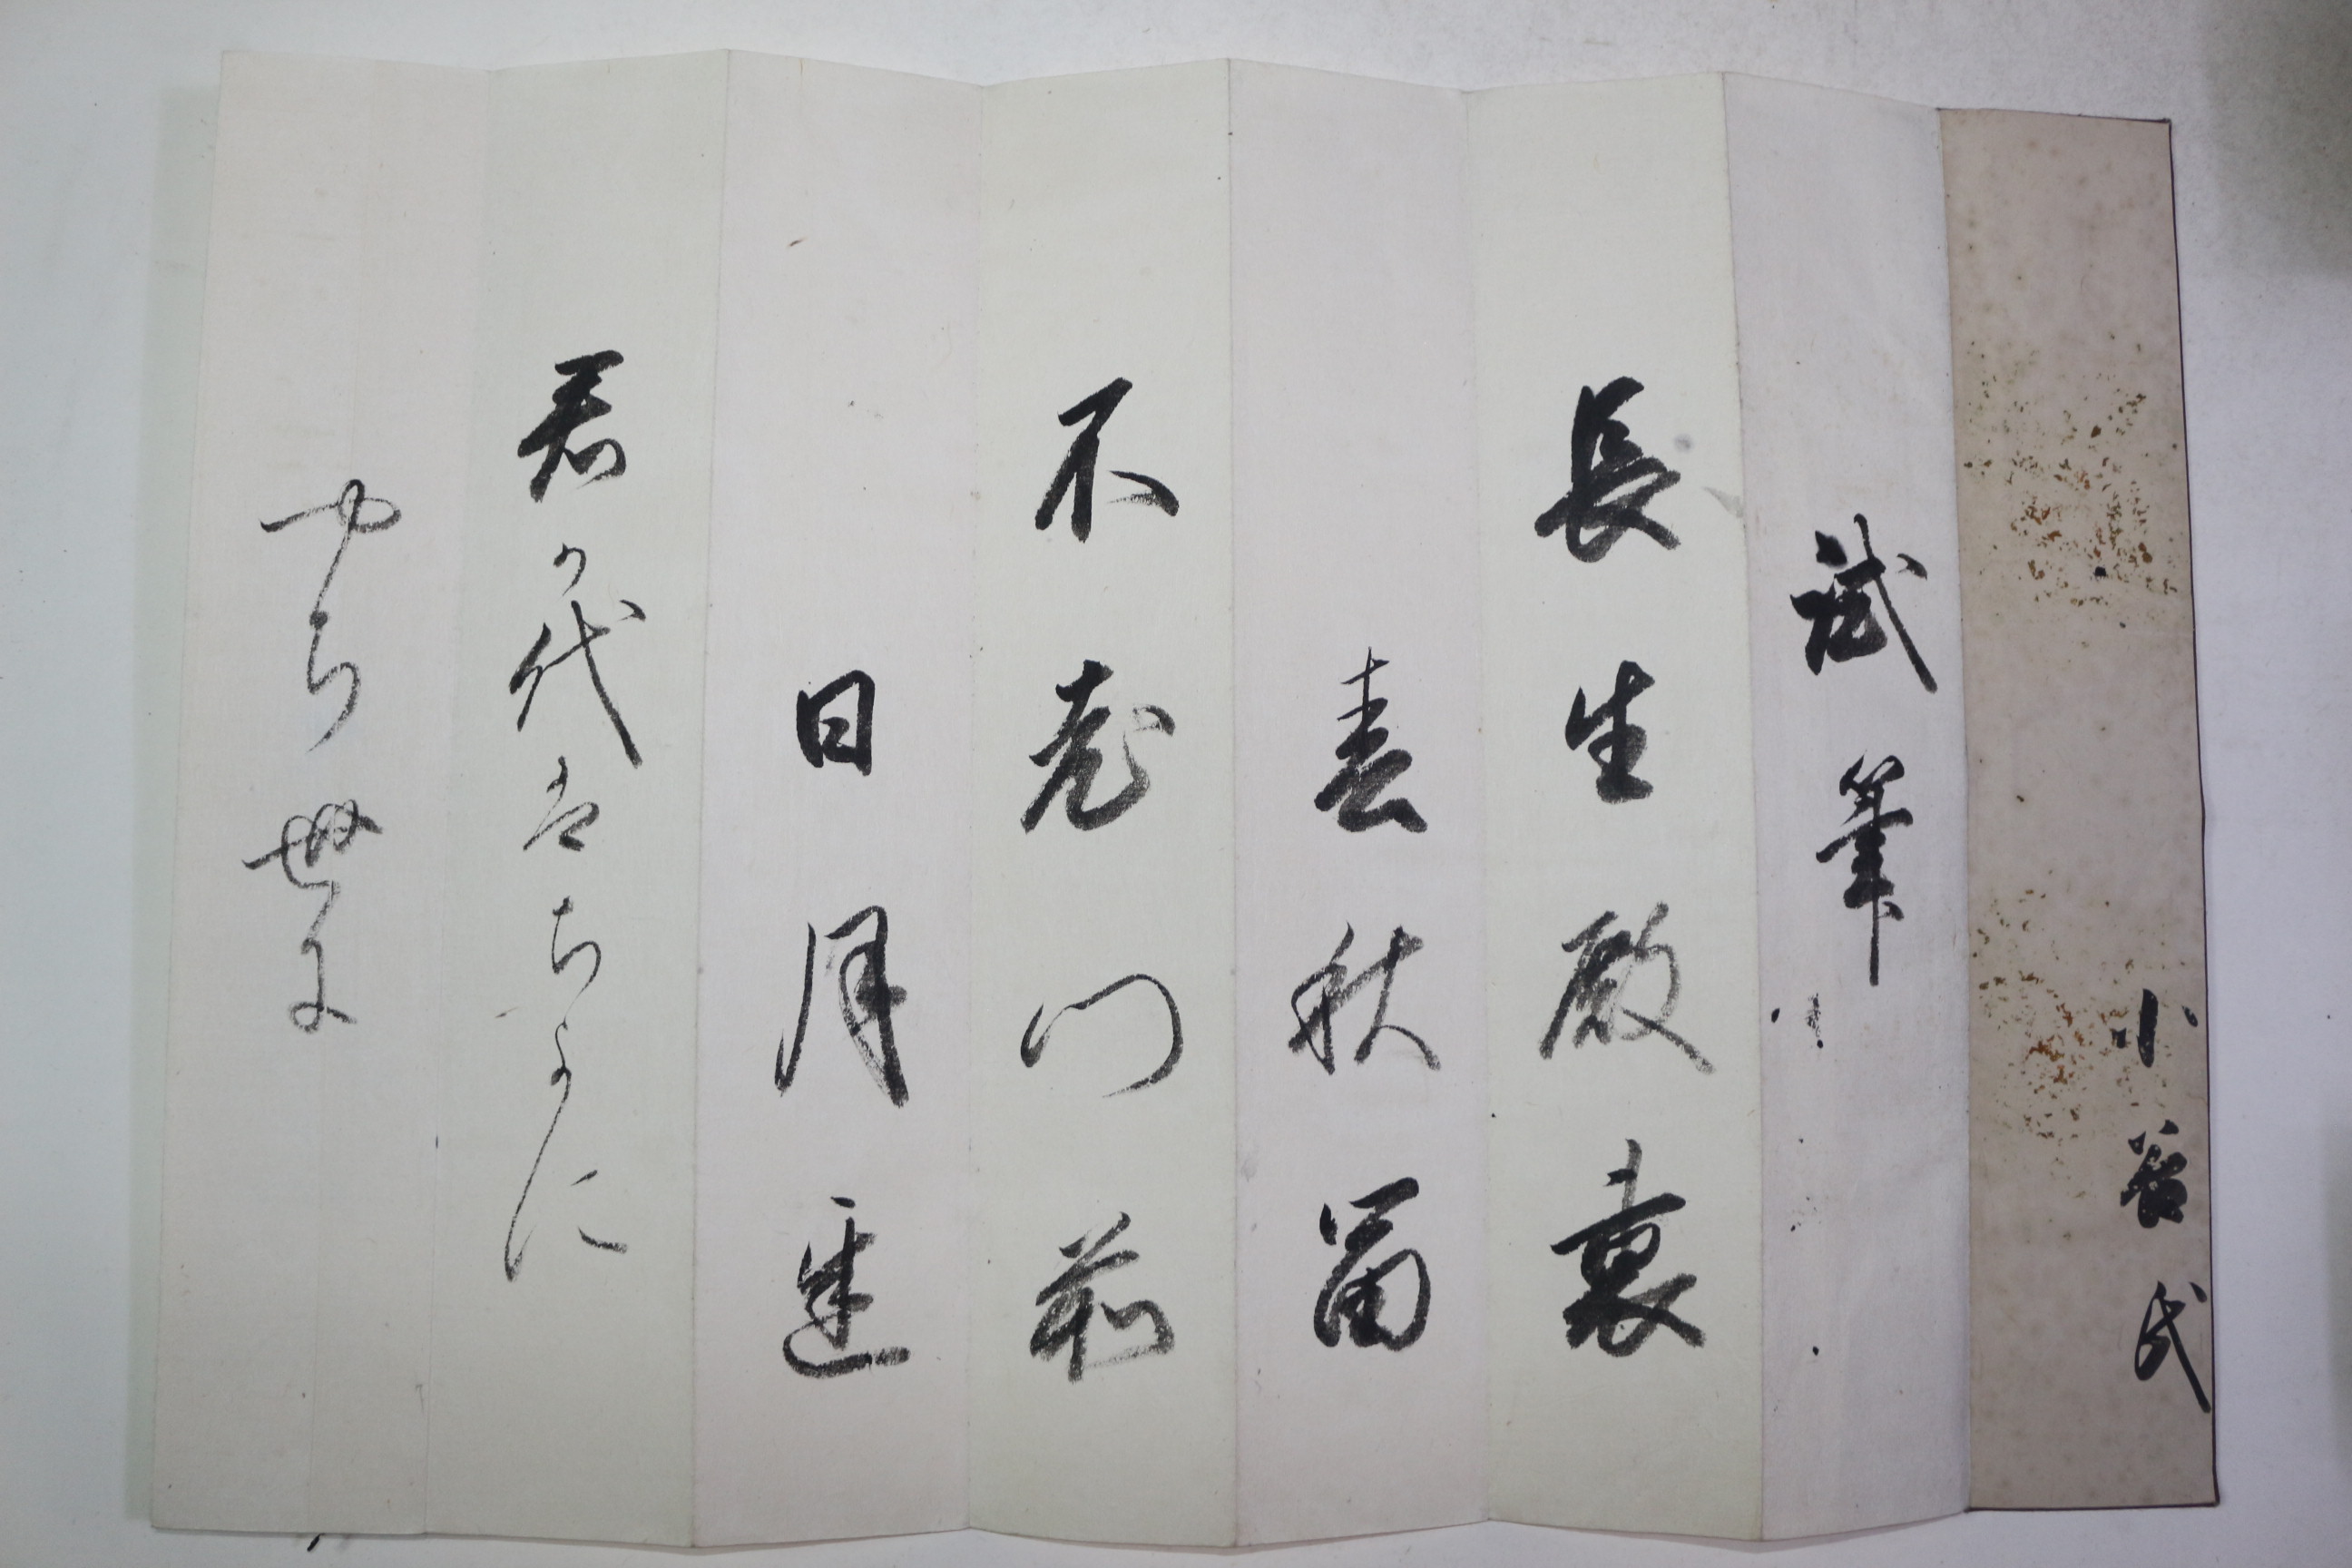 小 氏
試筆
長生殿裏
春秋富
不老門前
日月遅
君か代はちよに
やち世に